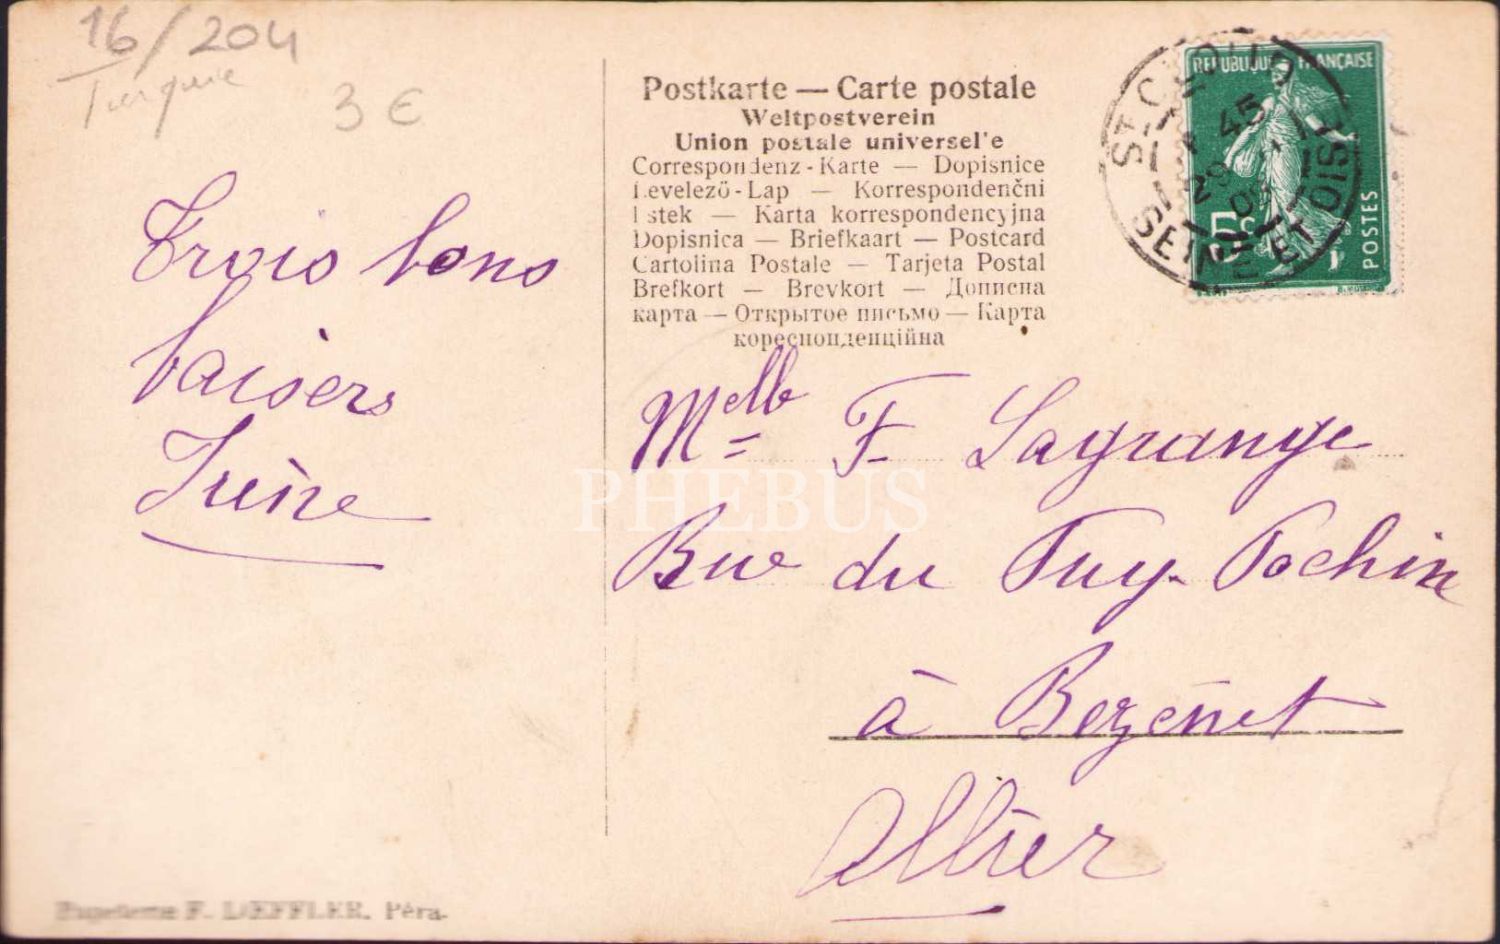 16/204
Turquie
3 €
Trois bons
baisers
Irène
Postkarte — Carte postale
Weltpostverein
Union postale universel'e
Correspondenz-Karte — Dopisnice
Levelezö-Lap — Korrespondenčni
listek — Karta korrespondencyjna
Dopisnica — Briefkaart — Postcard
Cartolina Postale — Tarjeta Postal
Brefkort — Brevkort — Дописна
карта — Открытое письмо — Карта
кореспонденційна
REPUBLIQUE FRANÇAISE
5c
POSTES
ST CLOUD
45
29
09
SEINE ET OISE
Melle F. Lagrange
Rue du Puy-Pochin
à Bezenet
Allier
PHEBUS
Papeterie F. LŒFFLER, Péra.